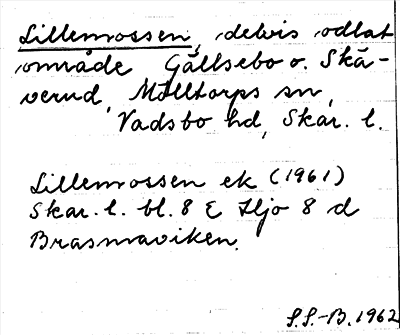 Lillemossen, delvis odlat
område Gällsebo o. Skä-
verud, Mölltorps sn,
Vadsbo hd, Skar. l.
Lillemossen ek (1961)
Skar. l. bl. 8 E Hjo 8 d
Brasmaviken.
S.S-B. 1962